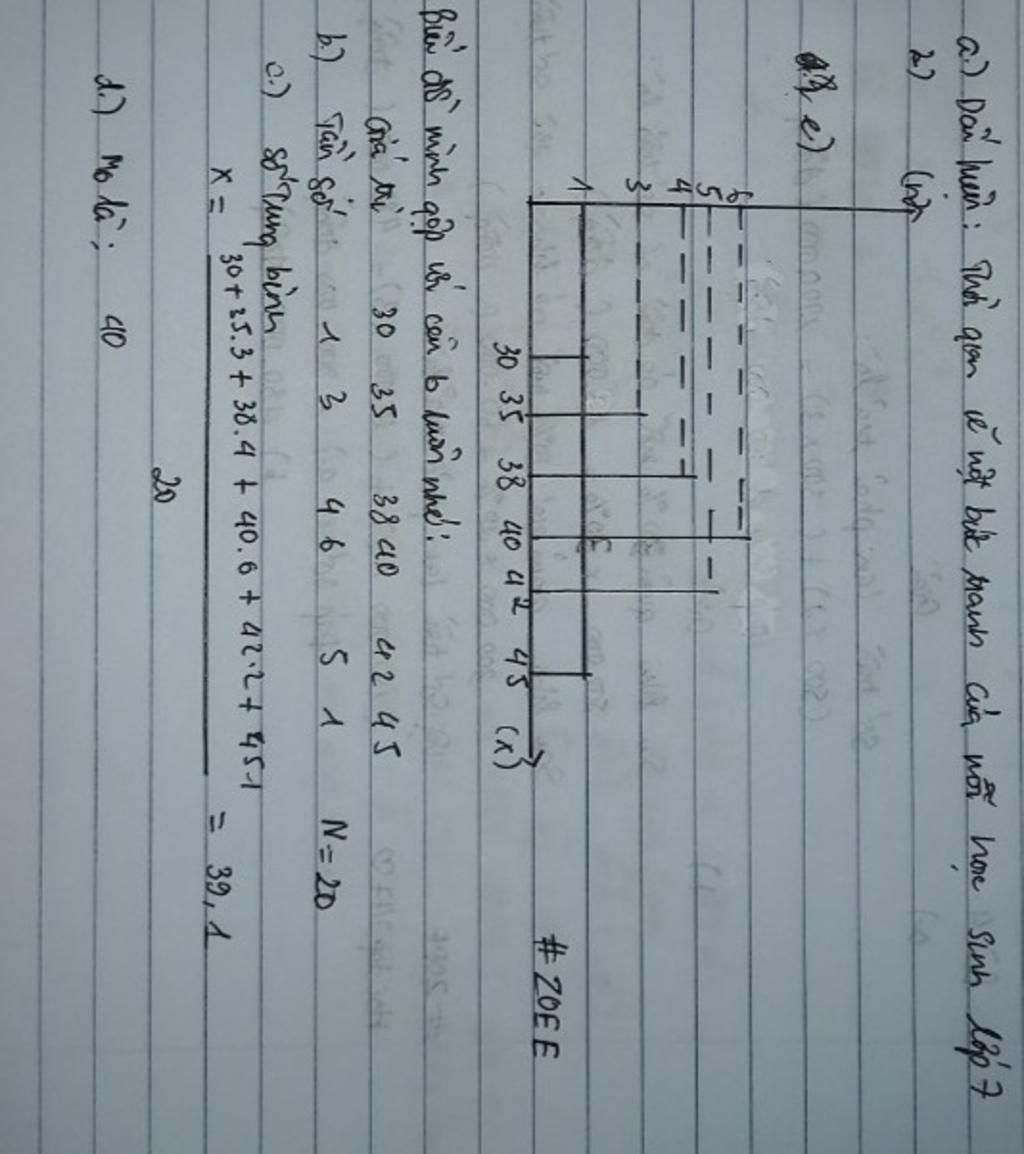 a.) Dấu hiệu: Thời gian vẽ một bức tranh của mỗi học sinh lớp 7
2) (n)
e)
6
5
4
3
1
30 35 38 40 42 45 (x)
# ZOEE
Biểu đồ mình gộp với câu b luôn nhé!
Giá trị 30 35 38 40 42 45
b.) Tần số 1 3 4 6 5 1 N=20
c.) số trung bình
x = 30+35.3+38.4+40.6+42.2+45.1 = 39,1
20
d.) Mo là: 40